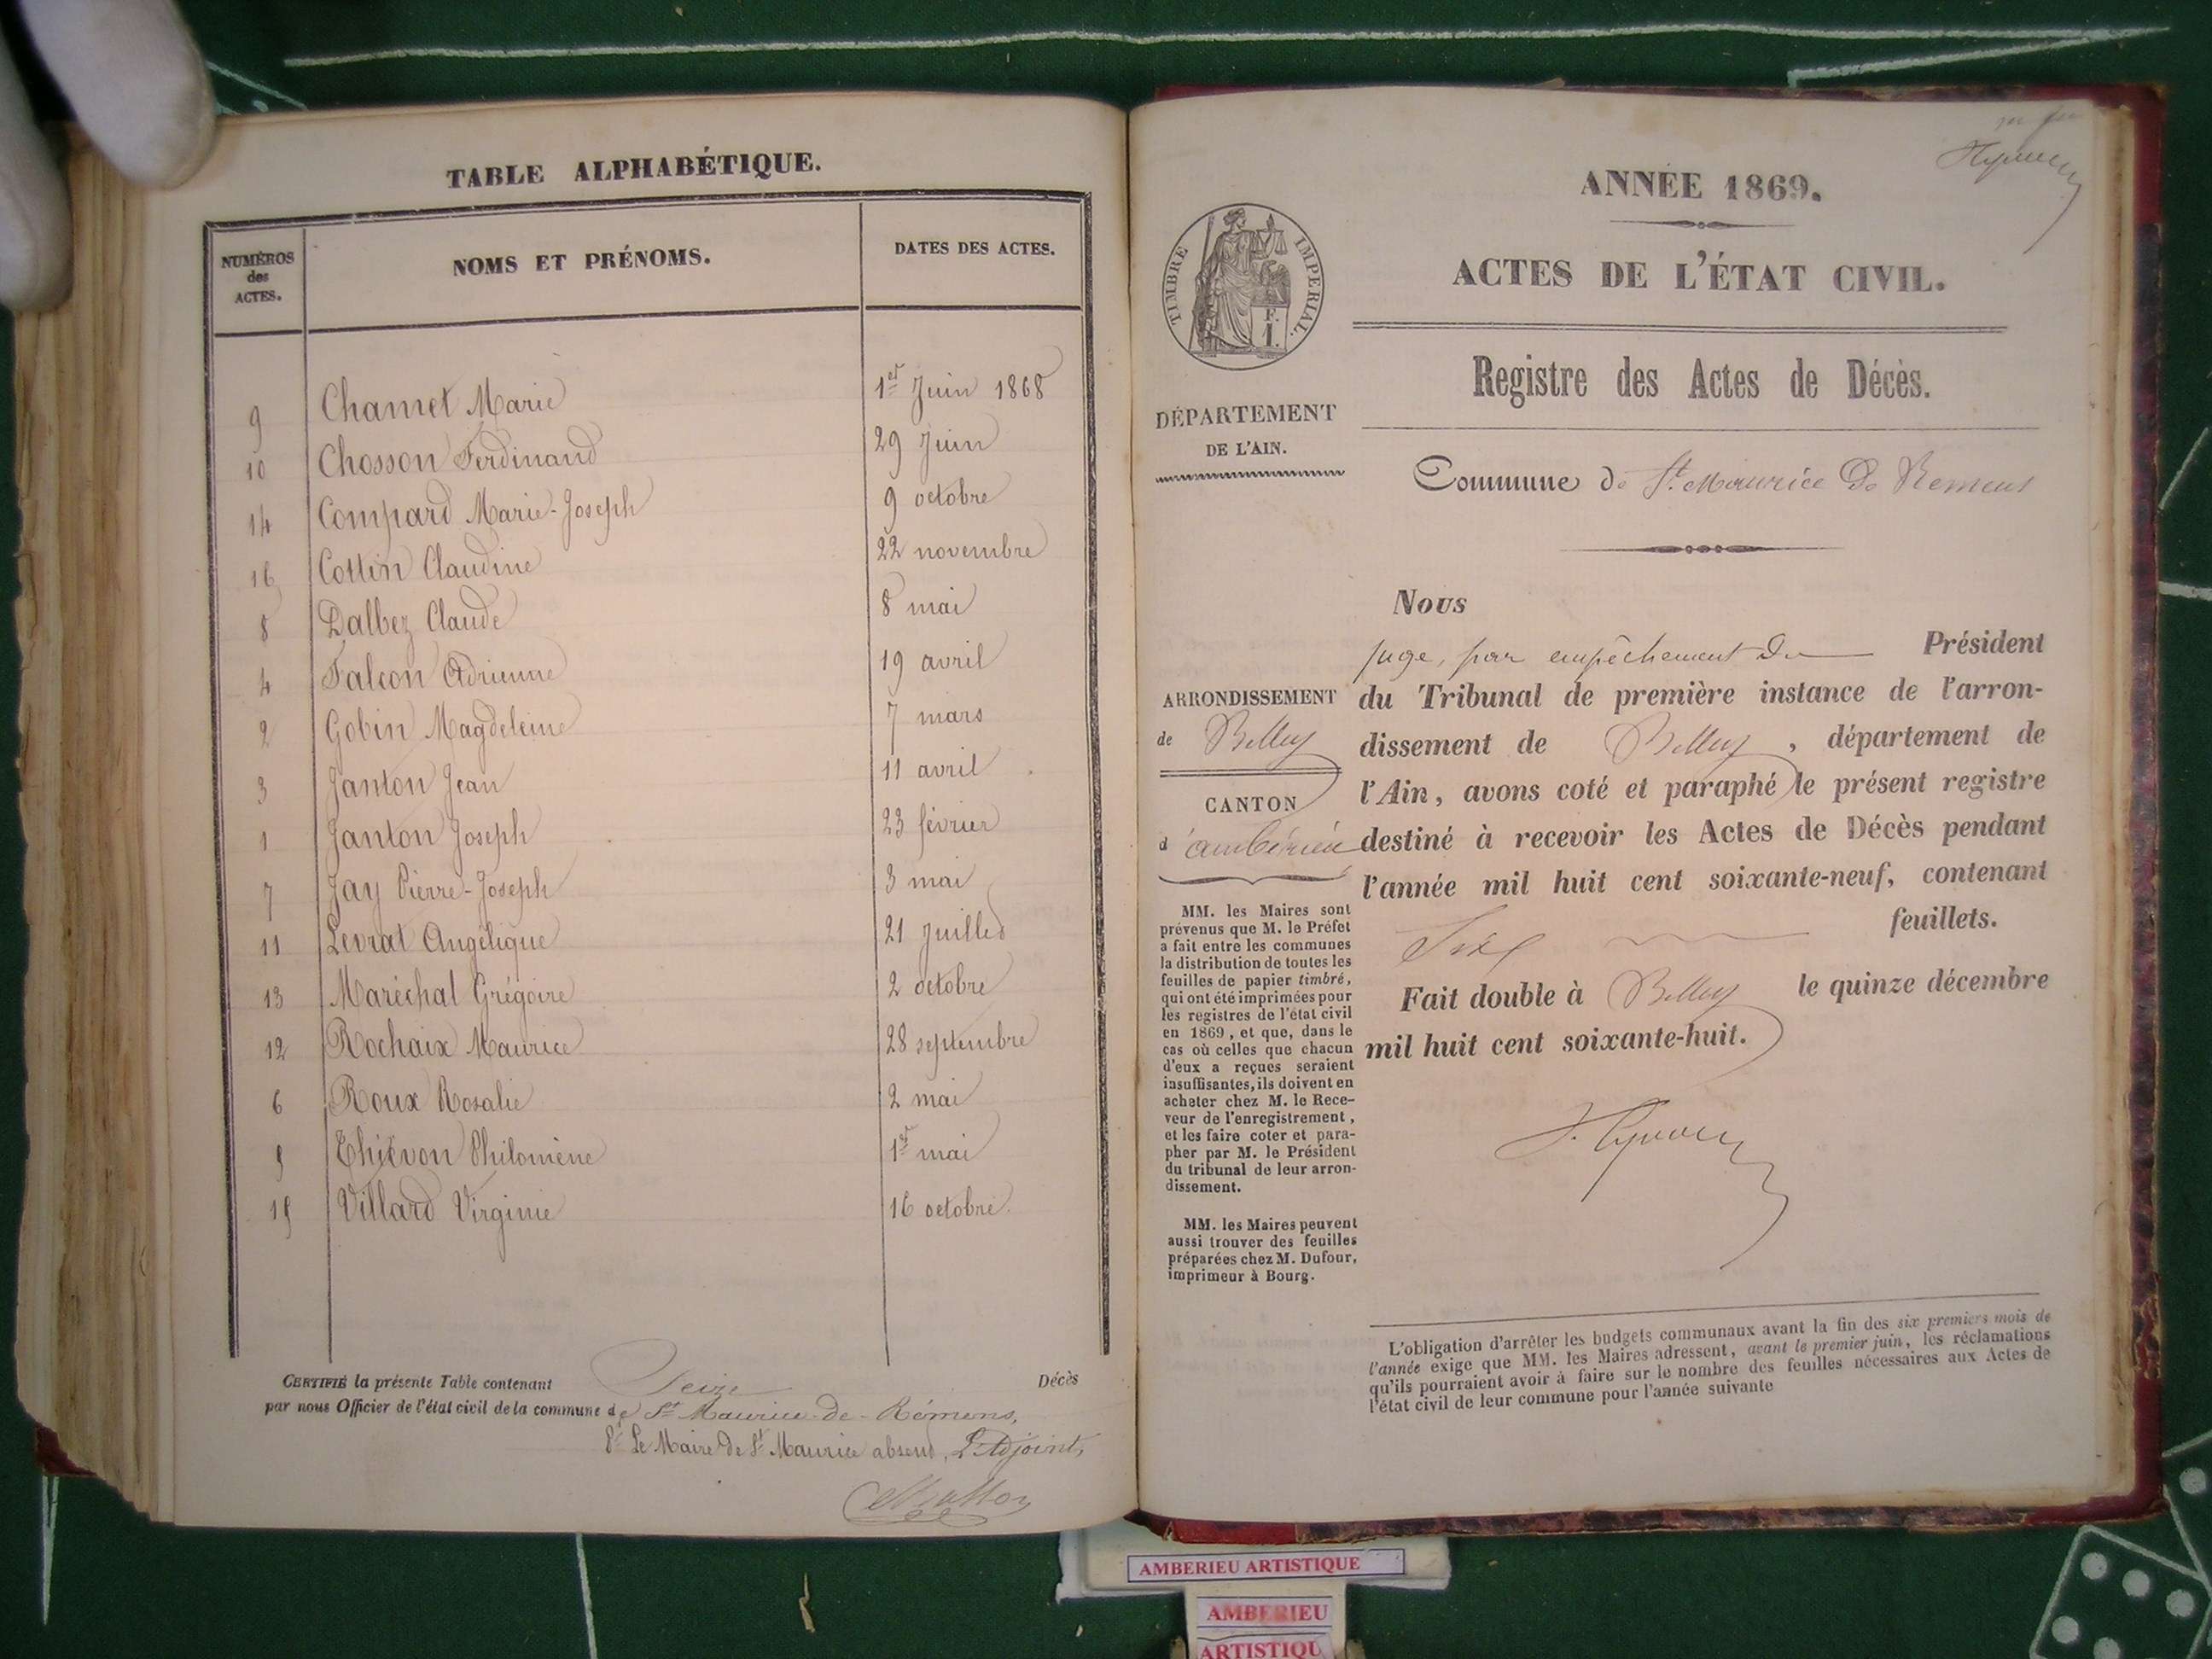 TABLE ALPHABÉTIQUE.
NUMÉROS
des
ACTES.
NOMS ET PRÉNOMS.
DATES DES ACTES.
9 Chamet Marie 1er Juin 1868
10 Chosson Ferdinand 29 Juin
14 Compard Marie-Joseph 9 octobre
16 Cottin Claudine 22 novembre
8 Dalbez Claude 8 mai
4 Falcon Adrienne 19 avril
2 Gobin Magdeleine 7 mars
3 Janton Jean 11 avril
1 Janton Joseph 23 février
7 Jay Pierre-Joseph 3 mai
11 Levrat Angélique 21 Juillet
13 Maréchal Grégoire 2 octobre
12 Rochaix Maurice 28 septembre
6 Roux Rosalie 2 mai
5 Thiévon Philomène 1er mai
15 Villard Virginie 16 octobre.
CERTIFIÉ la présente Table contenant Seize Décès
par nous Officier de l'état civil de la commune de St Maurice-de-Rémens,
Pr Le Maire de St Maurice absent, L'Adjoint,
ANNÉE 1869.
TIMBRE IMPÉRIAL.
F.
1.
ACTES DE L'ÉTAT CIVIL.
Registre des Actes de Décès.
DÉPARTEMENT
DE L'AIN.
Commune de St. Maurice De Remens
ARRONDISSEMENT
de Belley
CANTON
d'ambérieu
MM. les Maires sont
prévenus que M. le Préfet
a fait entre les communes
la distribution de toutes les
feuilles de papier timbré,
qui ont été imprimées pour
les registres de l'état civil
en 1869, et que, dans le
cas où celles que chacun
d'eux a reçues seraient
insuffisantes, ils doivent en
acheter chez M. le Rece-
veur de l'enregistrement,
et les faire coter et para-
pher par M. le Président
du tribunal de leur arron-
dissement.
MM. les Maires peuvent
aussi trouver des feuilles
préparées chez M. Dufour,
imprimeur à Bourg.
Nous
juge, par empêchement du Président
du Tribunal de première instance de l'arron-
dissement de Belley, département de
l'Ain, avons coté et paraphé le présent registre
destiné à recevoir les Actes de Décès pendant
l'année mil huit cent soixante-neuf, contenant
Six feuillets.
Fait double à Belley le quinze décembre
mil huit cent soixante-huit.
L'obligation d'arrêter les budgets communaux avant la fin des six premiers mois de
l'année exige que MM. les Maires adressent, avant le premier juin, les réclamations
qu'ils pourraient avoir à faire sur le nombre des feuilles nécessaires aux Actes de
l'état civil de leur commune pour l'année suivante
AMBERIEU ARTISTIQUE
AMBERIEU
ARTISTIQU